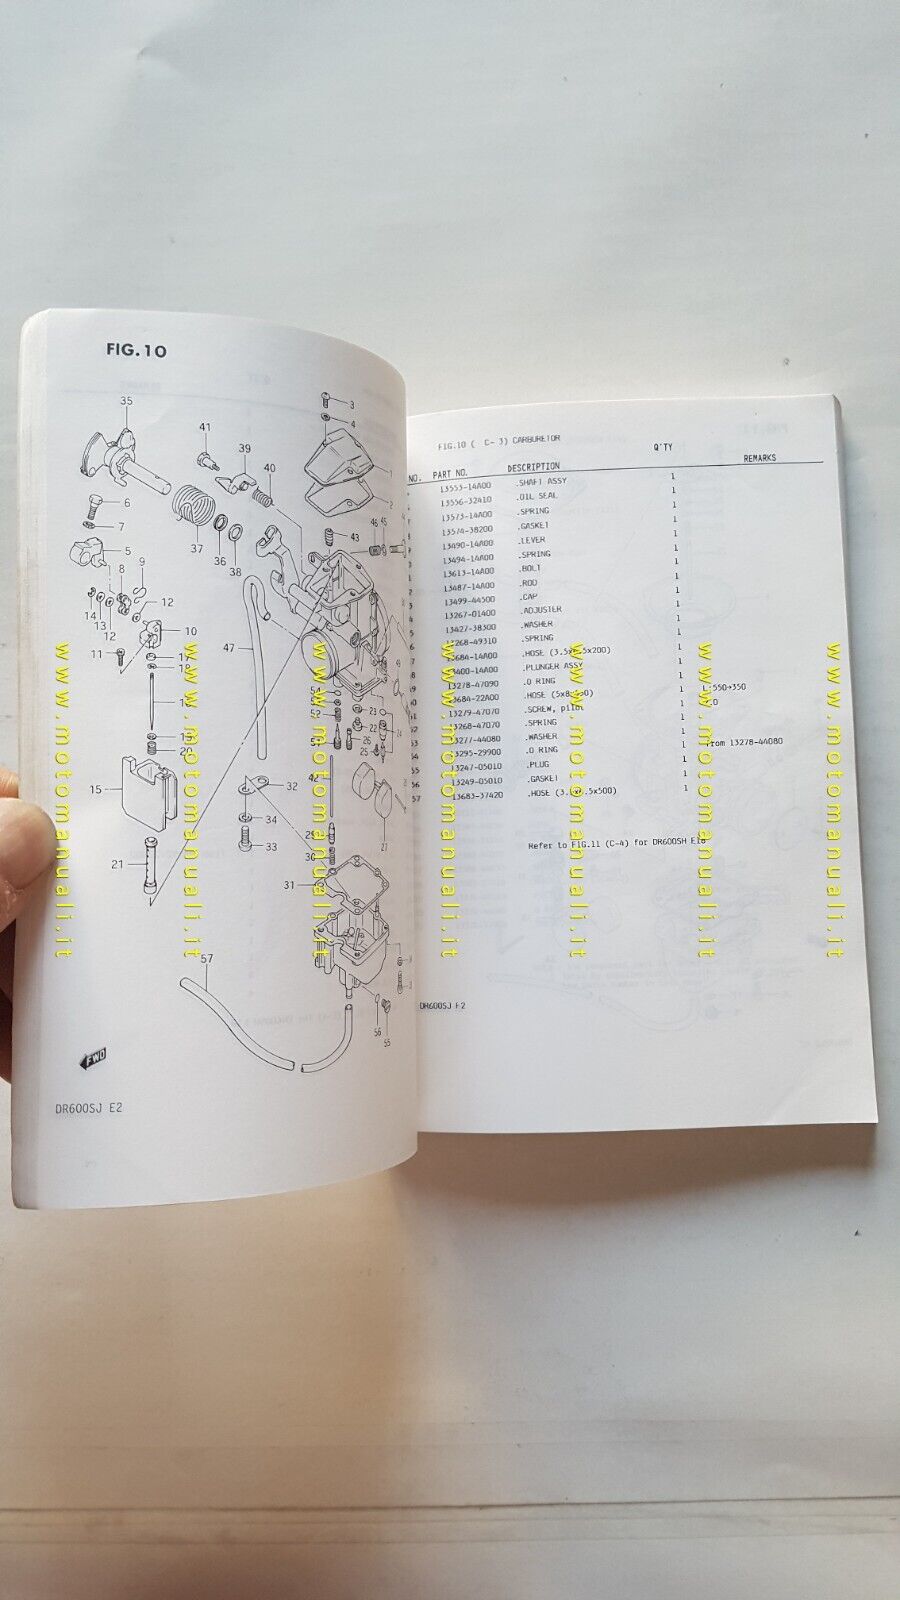 FIG. 10
35
41
39
40
3
4
1
2
6
7
5
37
36
38
43
46
45
9
8
14
13
12
12
10
11
47
15
21
32
34
33
31
23
22
24
25
26
57
56
55
FWD
DR600SJ E2
FIG.10 ( C- 3) CARBURETOR
NO. PART NO. DESCRIPTION Q'TY REMARKS
13553-14A00 .SHAFT ASSY 1
13556-32410 .OIL SEAL 1
13573-14A00 .SPRING 1
13574-38200 .GASKET 1
13490-14A00 .LEVER 1
13494-14A00 .SPRING 1
13613-14A00 .BOLT 1
13487-14A00 .ROD 1
13499-44500 .CAP 1
13267-01400 .ADJUSTER 1
13427-38300 .WASHER 1
13268-49310 .SPRING 1
13684-14A00 .HOSE 1
.PLUNGER ASSY 1
13278-47090 .O RING 1
13684-22A00 .HOSE 1 L:550→350
13279-47070 .SCREW, pilot 1
13268-47070 .SPRING 1
13277-44080 .WASHER 1 from 13278-44080
13295-29900 .O RING 1
13247-05010 .PLUG 1
56 13249-05010 .GASKET 1
57 13683-37420 .HOSE 1
Refer to FIG.11 (C-4) for DR600SH E18
DR600SJ E2
www.motomanuali.it
www.motomanuali.it
www.motomanuali.it
www.motomanuali.it
www.motomanuali.it
www.motomanuali.it
www.motomanuali.it